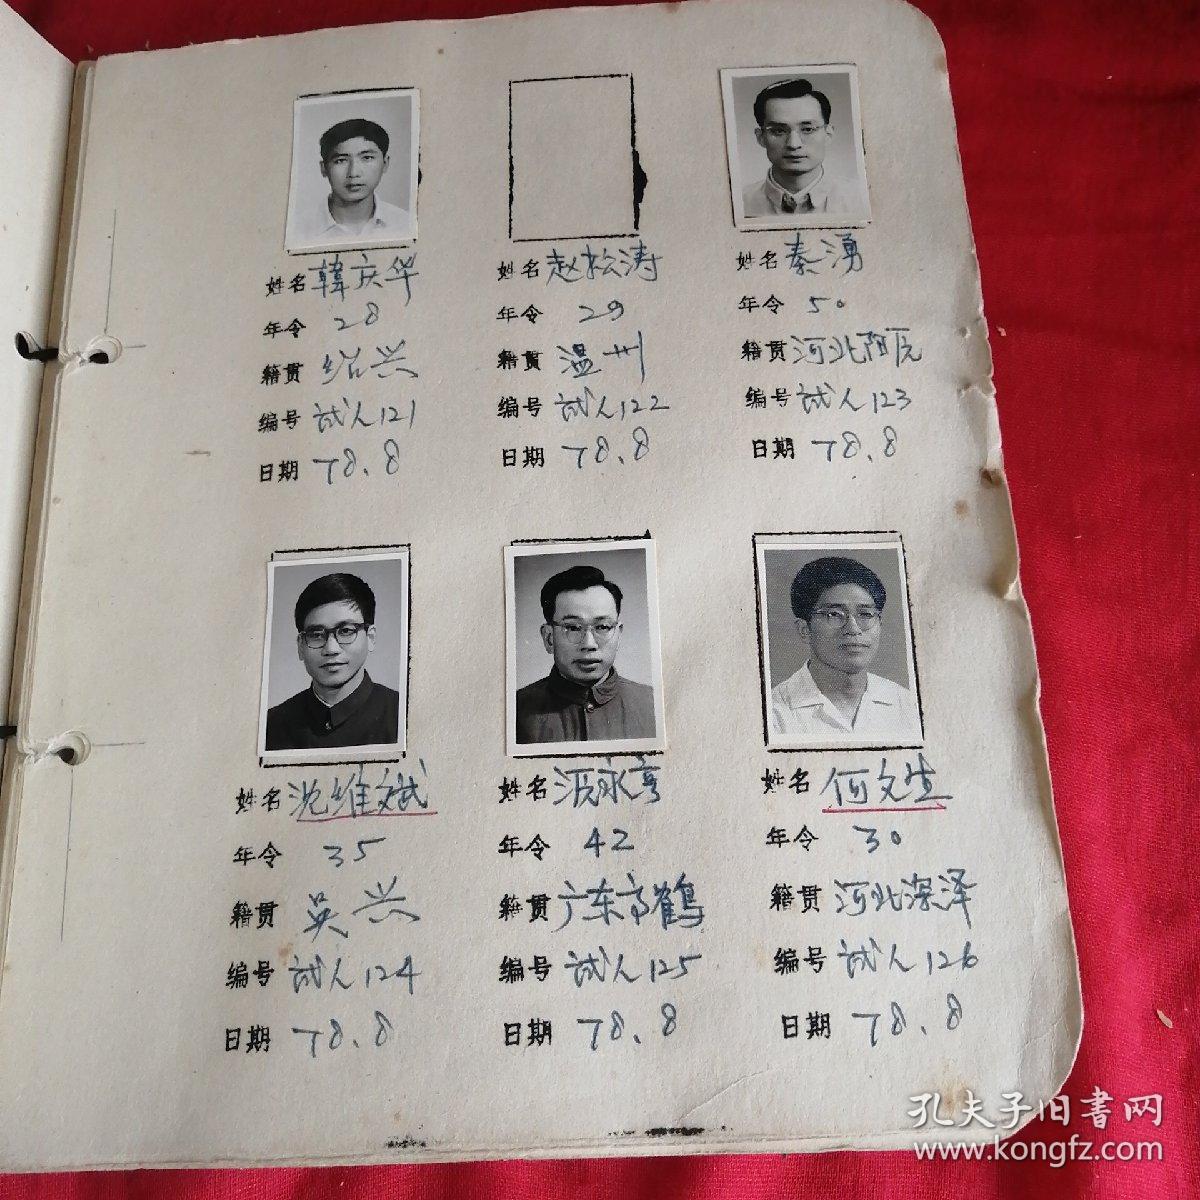 姓名 韓庆华
年令 28
籍贯 绍兴
编号 试人121
日期 78.8
姓名 赵松涛
年令 29
籍贯 温州
编号 试人122
日期 78.8
姓名 秦湧
年令 50
籍贯 河北
编号 试人123
日期 78.8
姓名 沈维斌
年令 35
籍贯 吴兴
编号 试人124
日期 78.8
姓名 永亨
年令 42
籍贯 广东高鶴
编号 试人125
日期 78.8
姓名 何文生
年令 30
籍贯 河北深泽
编号 试人126
日期 78.8
孔夫子旧書网
www.kongfz.com